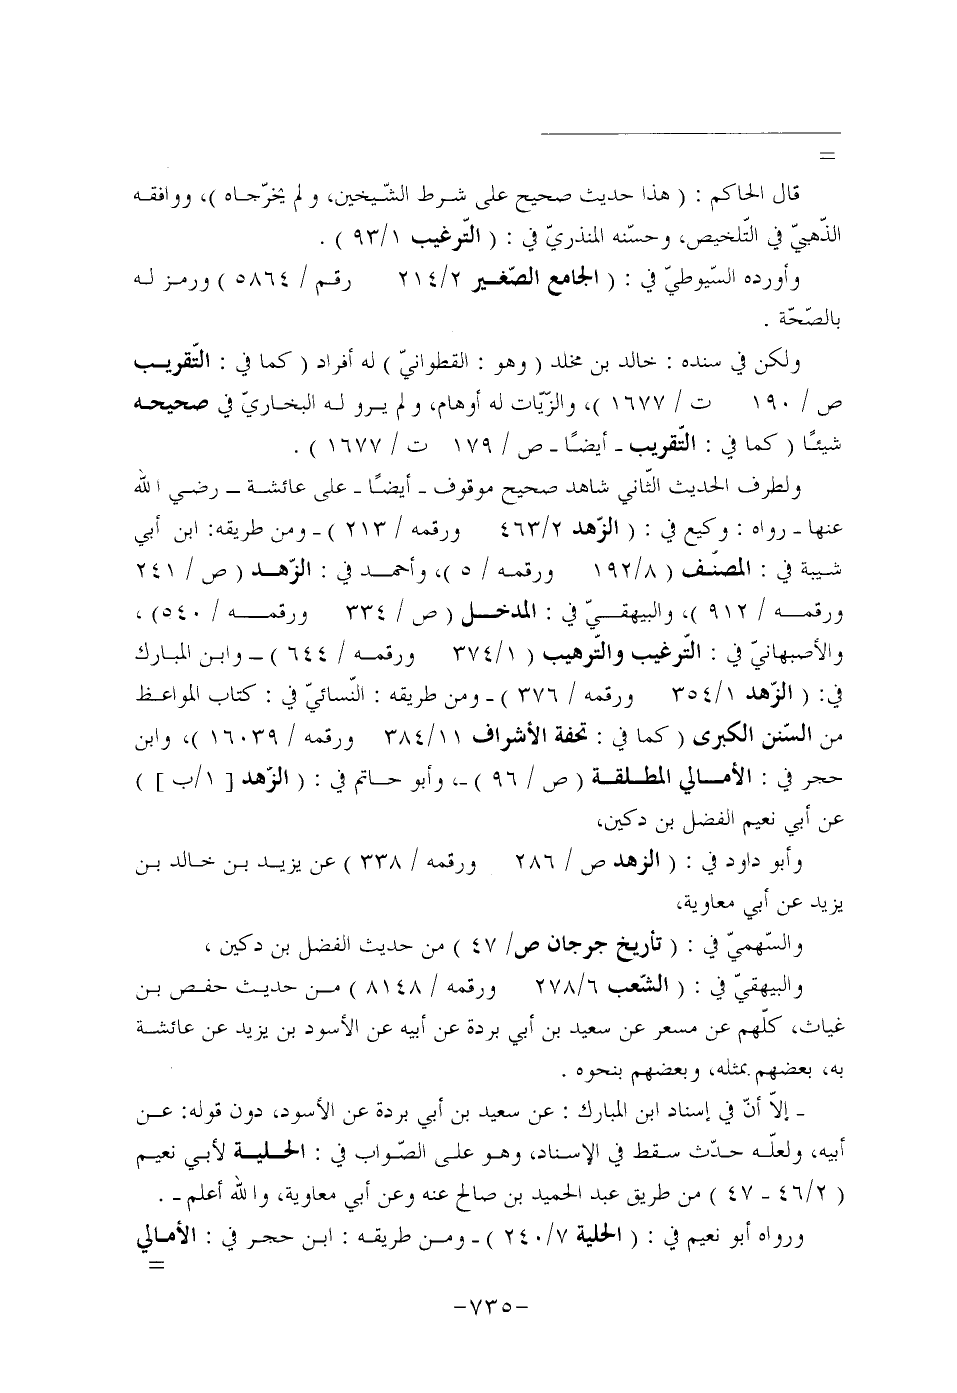 =
قال الحاكم : ( هذا حديث صحيح على شرط الشّيخين، و لم يخرّجاه )، ووافقه
الذّهبيّ في التّلخيص، وحسّنه المنذريّ في : ( التّرغيب ٩٣/١ ) .
وأورده السّيوطيّ في : ( الجامع الصّغير ٢١٤/٢ رقم / ٥٨٦٤ ) ورمز له
بالصّحّة .
ولكن في سنده : خالد بن مخلد ( وهو : القطوانيّ ) له أفراد ( كما في : التّقريب
ص / ١٩٠ ت / ١٦٧٧ )، والزّيّات له أوهام، و لم يرو له البخاريّ في صحيحه
شيئًا ( كما في : التّقريب ـ أيضًا ـ ص / ١٧٩ ت / ١٦٧٧ ) .
ولطرف الحديث الثّاني شاهد صحيح موقوف ـ أيضًا ـ على عائشة ــ رضي الله
عنها ـ رواه : وكيع في : ( الزّهد ٤٦٣/٢ ورقمه / ٢١٣ ) ـ ومن طريقه: ابن أبي
شيبة في : المصنّف ( ١٩٢/٨ ورقمه / ٥ )، وأحمد في : الزّهد ( ص / ٢٤١
ورقمه / ٩١٢ )، والبيهقيّ في : المدخل ( ص / ٣٣٤ ورقمه / ٥٤٠) ،
والأصبهانيّ في : التّرغيب والتّرهيب ( ٣٧٤/١ ورقمه / ٦٤٤ ) ــ وابن المبارك
في: ( الزّهد ٣٥٤/١ ورقمه / ٣٧٦ ) ـ ومن طريقه : النّسائيّ في : كتاب المواعظ
من السّنن الكبرى ( كما في : تحفة الأشراف ٣٨٤/١١ ورقمه / ١٦٠٣٩ )، وابن
حجر في : الأمالي المطلقة ( ص / ٩٦ ) ـ، وأبو حاتم في : ( الزّهد [ ١/ب ] )
عن أبي نعيم الفضل بن دكين،
وأبو داود في : ( الزهد ص / ٢٨٦ ورقمه / ٣٣٨ ) عن يزيد بن خالد بن
يزيد عن أبي معاوية،
والسّهميّ في : ( تأريخ جرجان ص/ ٤٧ ) من حديث الفضل بن دكين ،
والبيهقيّ في : ( الشّعب ٢٧٨/٦ ورقمه / ٨١٤٨ ) من حديث حفص بن
غياث، كلّهم عن مسعر عن سعيد بن أبي بردة عن أبيه عن الأسود بن يزيد عن عائشة
به، بعضهم بمثله، وبعضهم بنحوه .
ـ إلاّ أنّ في إسناد ابن المبارك : عن سعيد بن أبي بردة عن الأسود، دون قوله: عن
أبيه، ولعلّه حدّث سقط في الإسناد، وهو على الصّواب في : الحلية لأبي نعيم
( ٤٦/٢ ـ ٤٧ ) من طريق عبد الحميد بن صالح عنه وعن أبي معاوية، والله أعلم ـ .
ورواه أبو نعيم في : ( الحلية ٢٤٠/٧ ) ـ ومن طريقه : ابن حجر في : الأمالي
=
-٧٣٥-